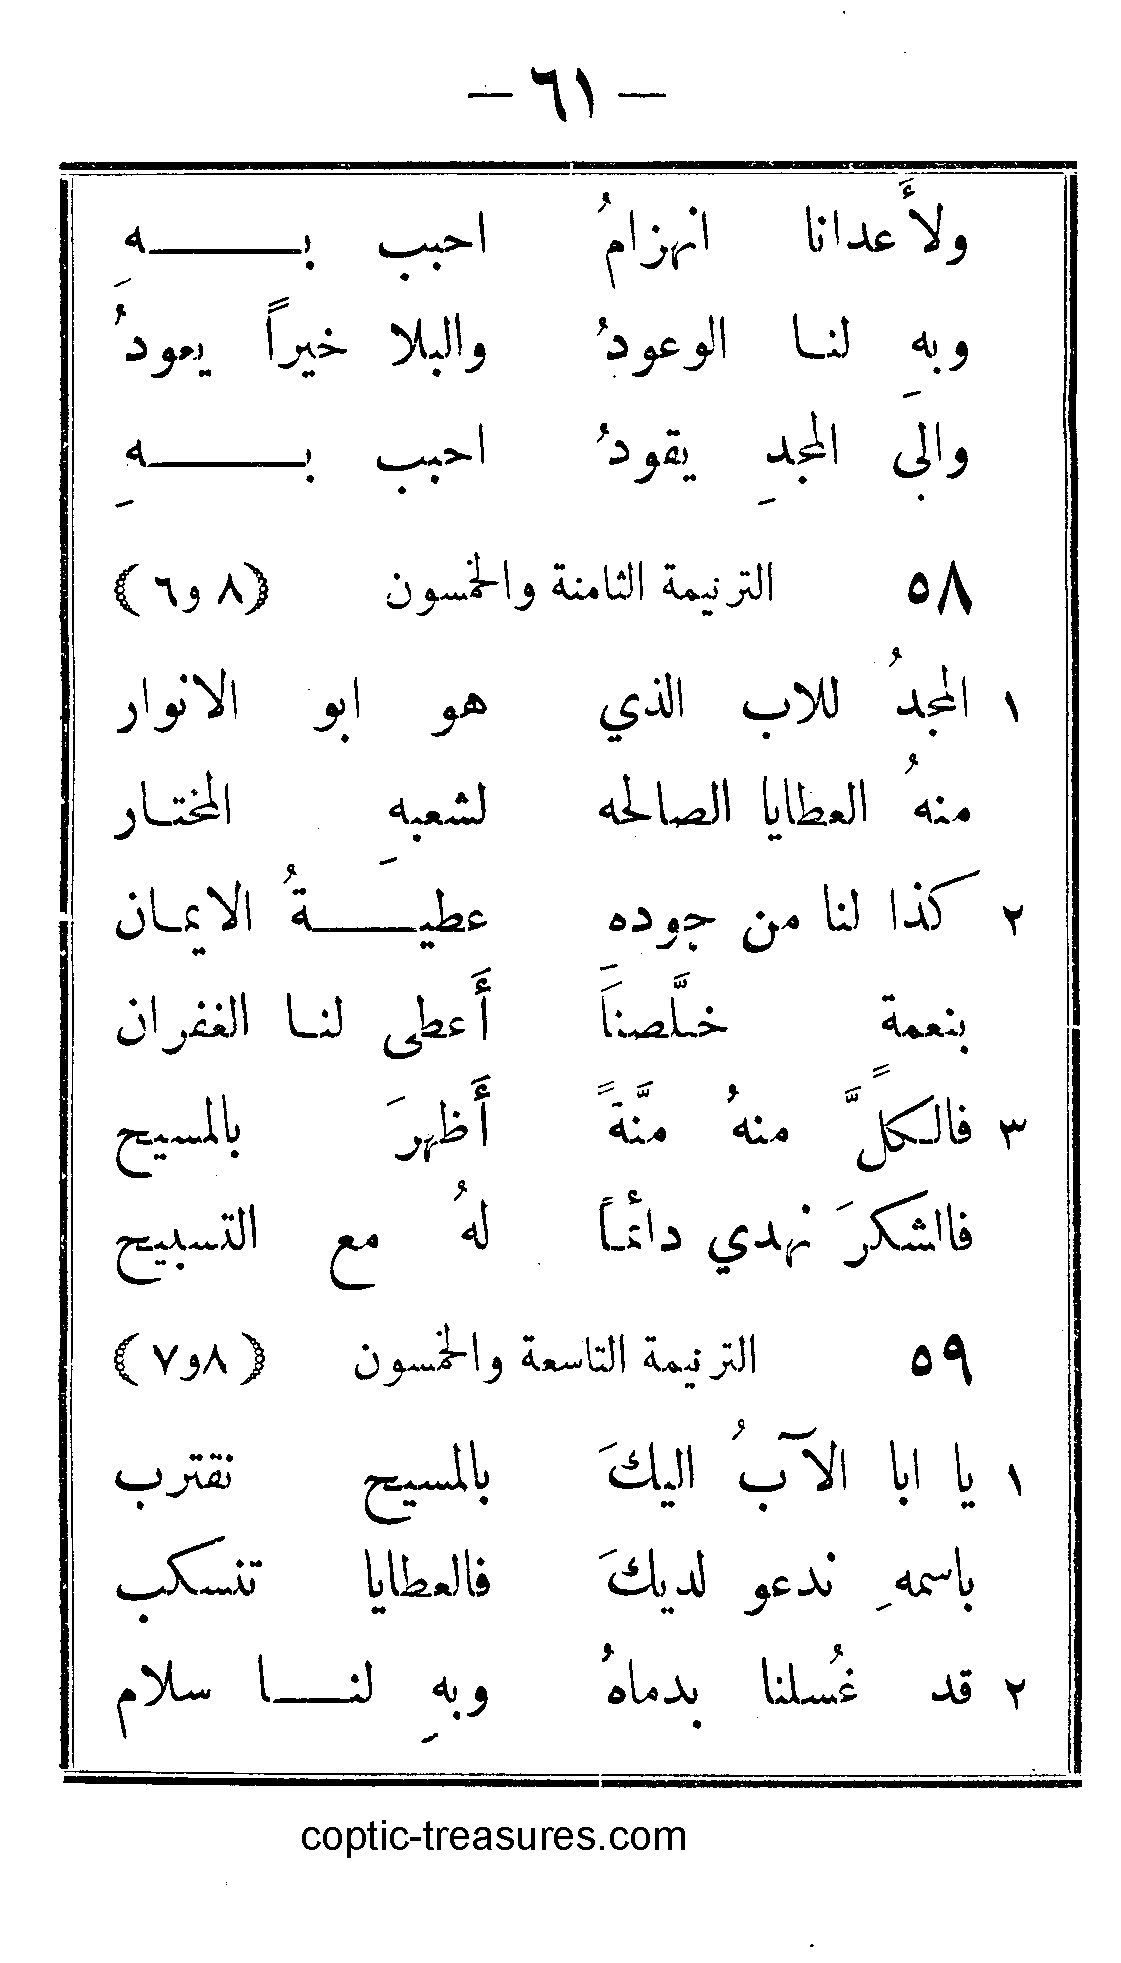 — ٦١ —
ولأَعدانا انهزامُ احبب بــــــهِ
وبهِ لنـا الوعودُ والبلا خيراً يعودُ
والى المجدِ يقودُ احبب بــــــهِ
٥٨ الترنيمة الثامنة والخمسون (٨ و٦)
١ المجدُ للاب الذي هو ابو الانوار
منهُ العطايا الصالحه لشعبهِ المختـار
٢ كذا لنا من جودهِ عطيــــةُ الايمـان
بنعمةٍ خلَّصنَا أَعطى لنـا الغفران
٣ فالكلَّ منهُ منَّةً أَظهرَ بالمسيح
فالشكرَ نهدي دائمـاً لهُ مع التسبيح
٥٩ الترنيمة التاسعة والخمسون (٨و٧)
١ يا ابا الآبُ اليكَ بالمسيح نقترب
باسمهِ ندعو لديكَ فالعطايا تنسكب
٢ قد غُسلنا بدماهُ وبهِ لنـــا سلام
coptic-treasures.com